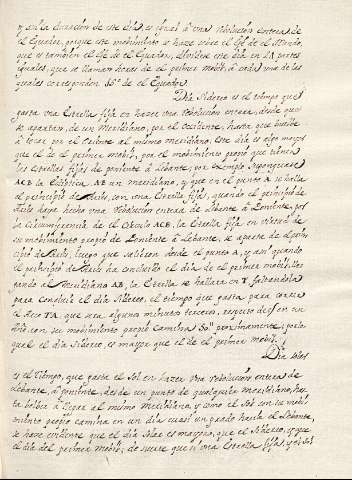 y assi la duracion de este dia, es igual á una revolucion entera de
el Equador, porque este mobimiento se haze sobre el Exe de el Mundo,
que es tambien el Exe de el Equador, dividese este dia en 24 partes
iguales, que se llaman horas de el primer mobil, á cada una de las
quales corresponden 15º de el Equador.
Dia Sidereo es el tiempo que
gasta una Estrella fixa en hazer una revolucion entera, desde que
se aparta, de un Meridiano, por el Occidente, hasta que buelve
á tocar por el Oriente al mismo meridiano. Este dia es algo mayor
que el de el primer mobil, por el mobimiento propio que tienen
las Estrellas fixas de poniente á Lebante; por exemplo supongase
ACB la Ecliptica, AB un meridiano, y que en el punto A se halla
el principio de Aries, con una Estrella fixa, quando el principio de
Aries haya hecho una revolucion entera de Lebante á Poniente, por
la circunferencia de el Circulo ACB, la Estrella fixa, en virtud de
su mobimiento propio de Poniente á Lebante, se aparta de el prin-
cipio de Aries, luego que salieron desde el punto A, y assi quando
el principio de Aries ha concluido el dia de el primer mobil, lle-
gando al Meridiano AB, la Estrella se hallara en T. faltandola
para concluir el dia Sidereo, el tiempo que gasta para correr
el Arco TA, que sera algunos minutos terceros, respecto de que en un
año con su mobimiento propio camina 50" proximamente, por lo
qual el dia Sidereo, es mayor que el de el primer mobil.
Dia solar
es el tiempo, que gasta el Sol en hazer una revolucion entera de
Lebante, á poniente, desde un punto de qualquier Meridiano, has-
ta bolber á llegar al mismo Meridiano, y como el Sol con su mobi-
miento propio camina en un dia cuasi un grado hacia el Lebante,
se haze evidente que el dia Solar es mayor, que el Sidereo, y que
el dia del primer mobil; de suerte que si una Estrella fixa, y el Sol